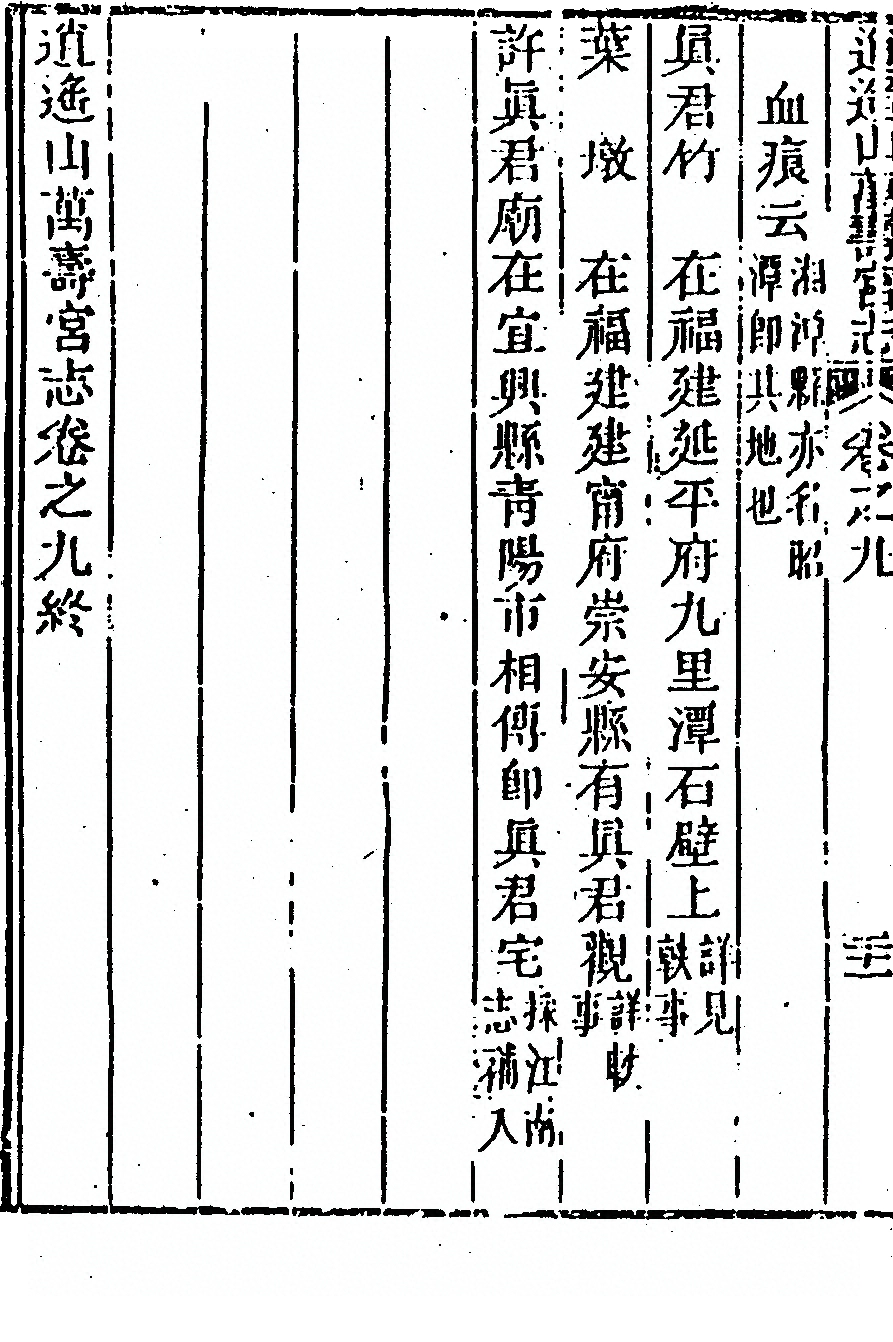 逍遙山萬壽宮志 卷之九
血痕云 湘潭縣亦名昭潭卽其地也
眞君竹 在福建延平府九里潭石壁上 詳見軼事
葉墩 在福建建甯府崇安縣有眞君觀 詳軼事
許眞君廟在宜興縣青陽市相傳卽眞君宅 採江南志補入
逍遙山萬壽宮志卷之九終